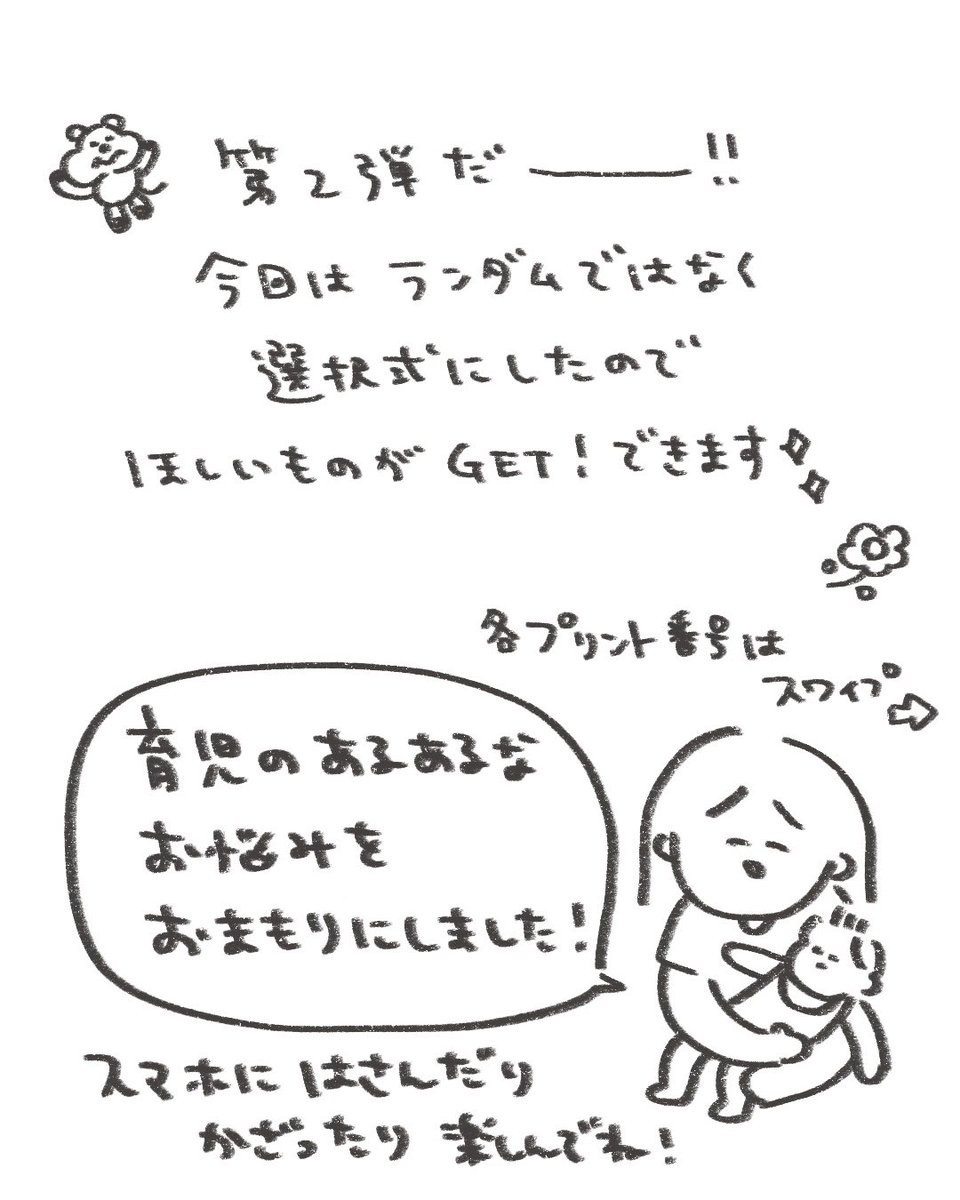 第2弾だ――!!
今日はランダムではなく
選択式にしたので
ほしいものがGET!できます
各プリント番号は
スワイプ
育児のあるあるな
お悩みを
おまもりにしました!
スマホにはさんだり
かざったり楽しんでね!